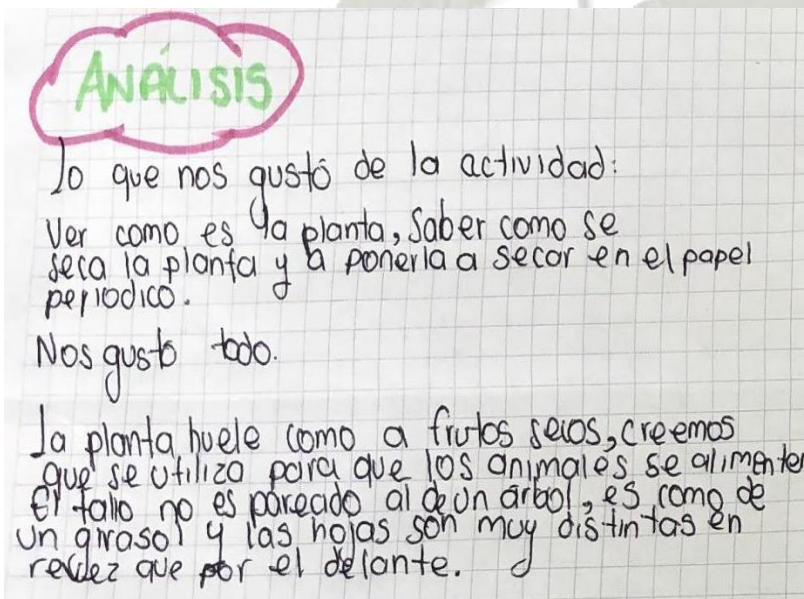 ANÁLISIS
lo que nos gustó de la actividad:
Ver como es la planta, Saber como se
seca la planta y a ponerla a secar en el papel
periodico.
Nos gustó todo.
la planta huele como a frutos secos, creemos
que se utiliza para que los animales se alimenten
El tallo no es pareado al de un árbol, es como de
un girasol y las hojas son muy distintas en
revdez que por el delante.